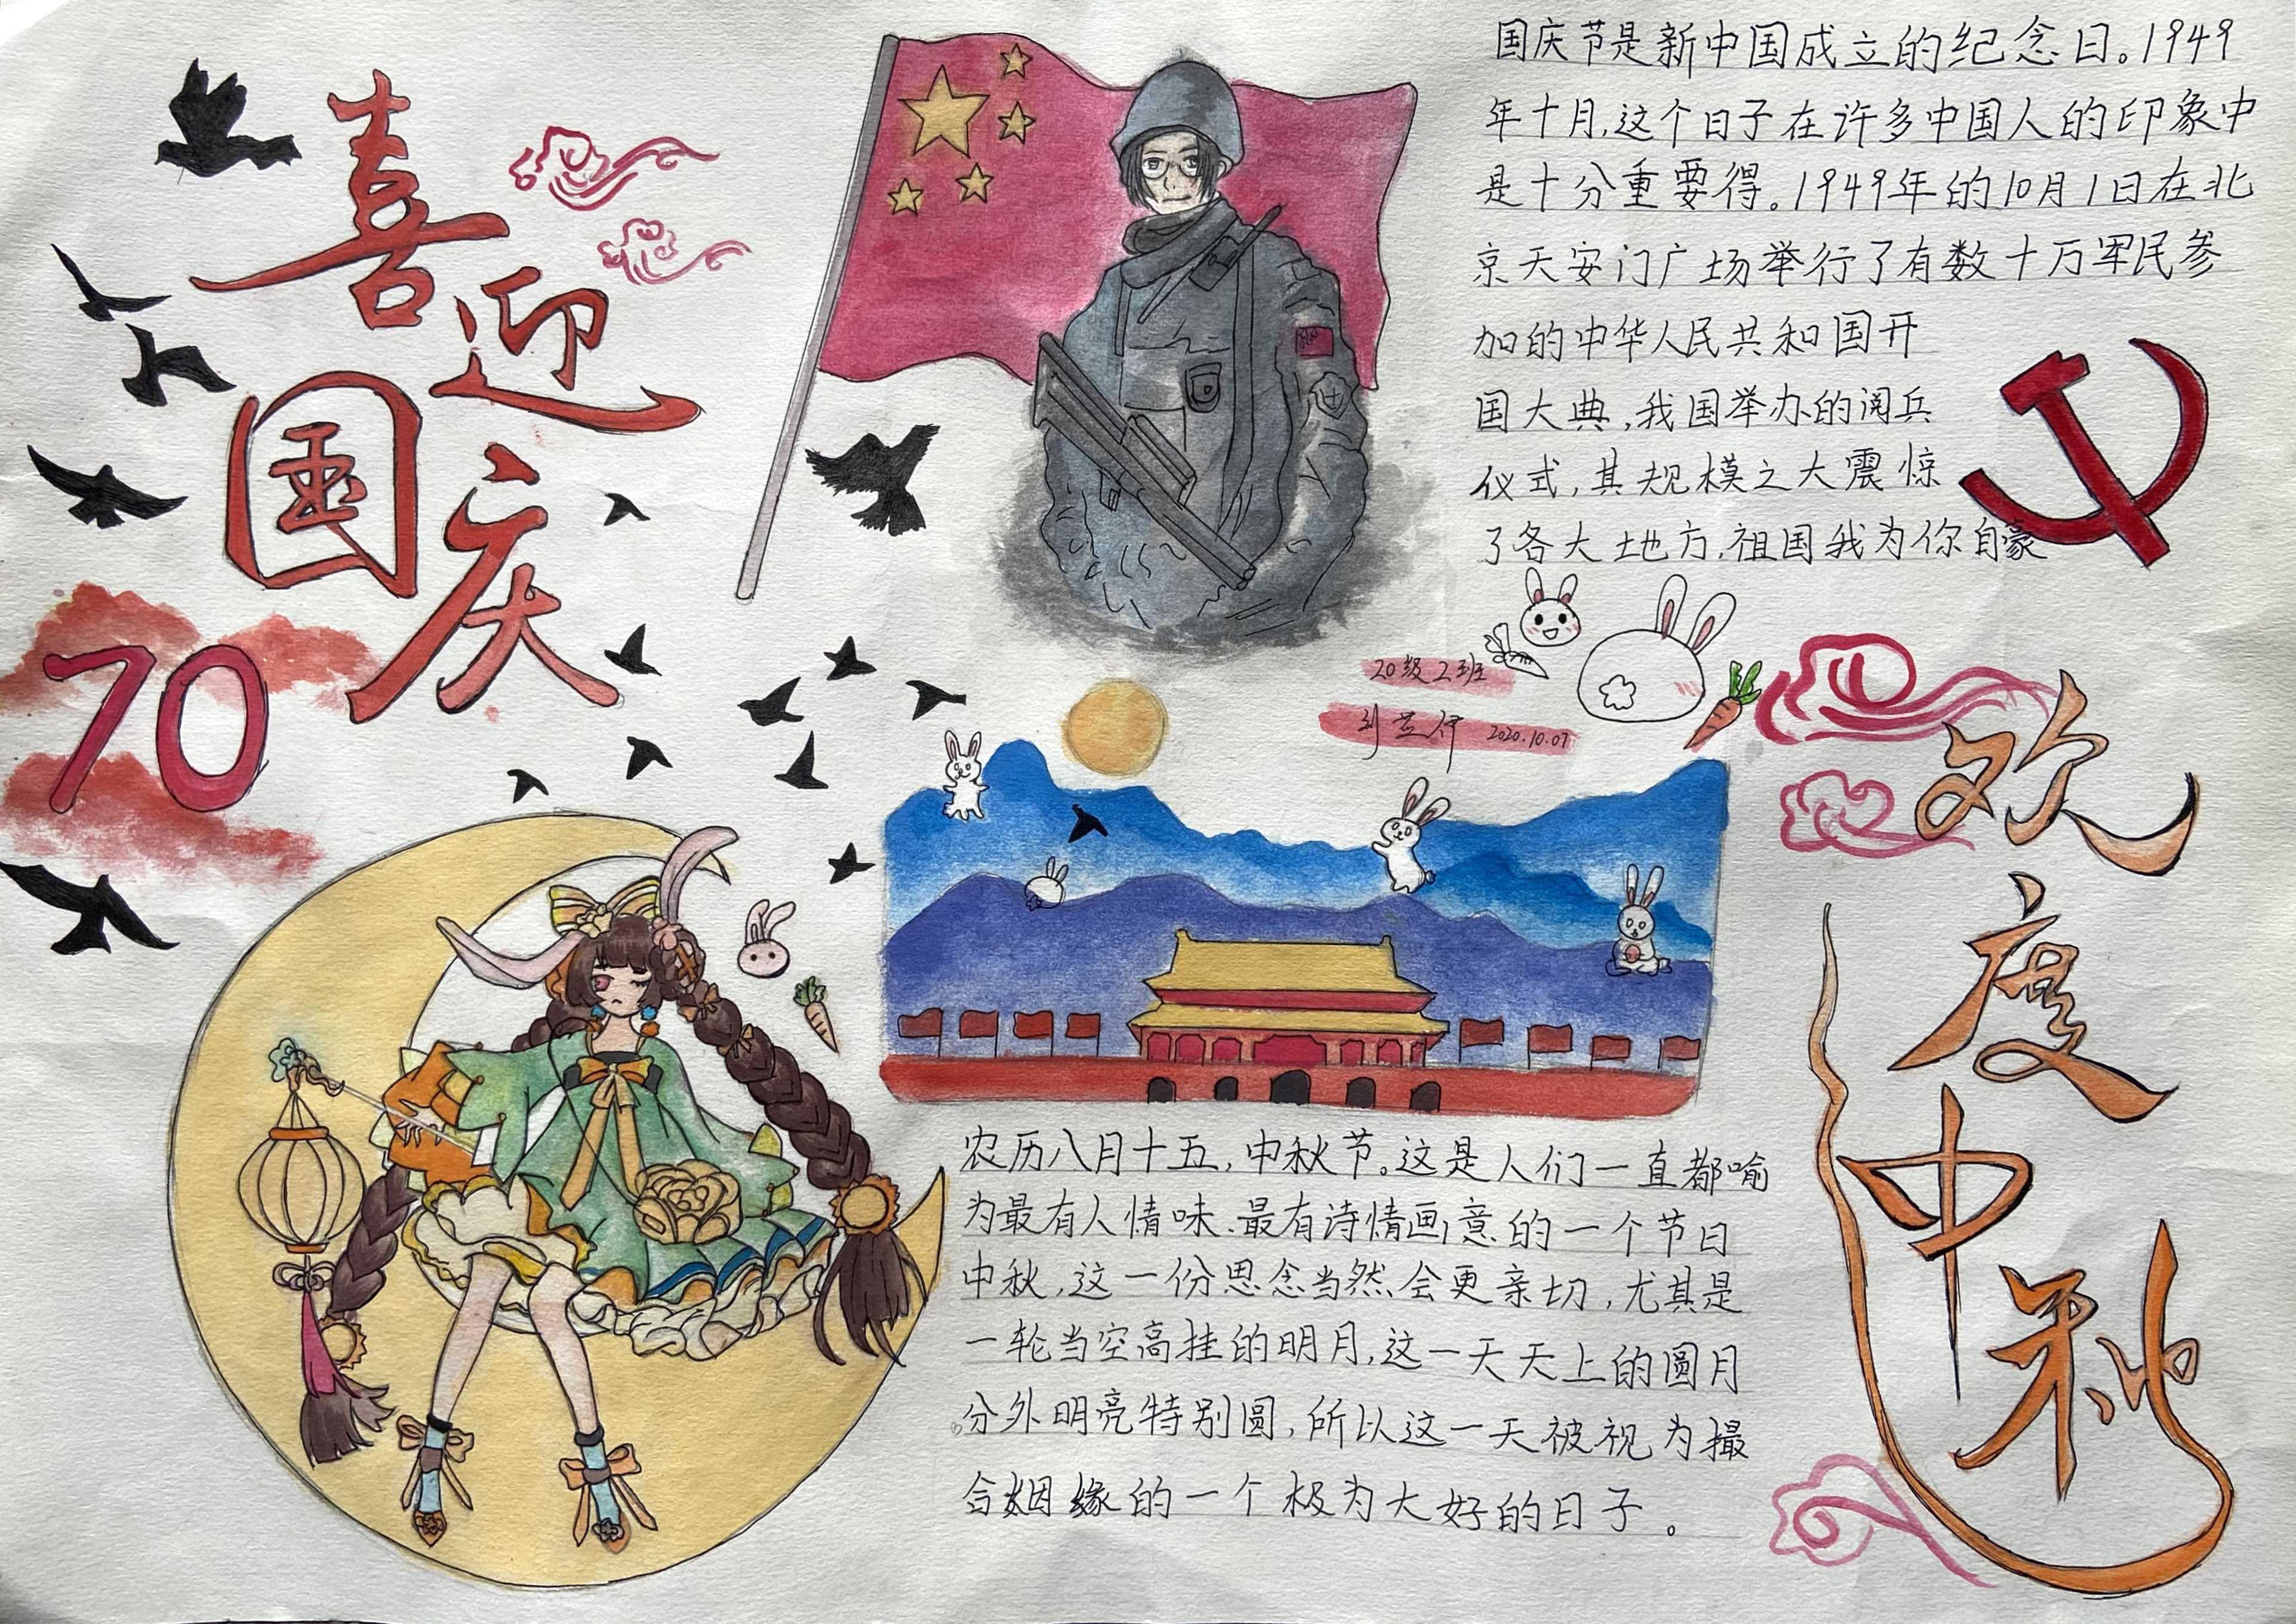 喜迎
国庆
70
国庆节是新中国成立的纪念日。1949
年十月,这个日子在许多中国人的印象中
是十分重要得。1949年的10月1日在北
京天安门广场举行了有数十万军民参
加的中华人民共和国开
国大典,我国举办的阅兵
仪式,其规模之大震惊
了各大土地方,祖国我为你自豪
20级2班
2020.10.07
欢度中秋
农历八月十五,中秋节。这是人们一直都喻
为最有人情味、最有诗情画意的一个节日
中秋,这一份思念当然会更亲切,尤其是
一轮当空高挂的明月,这一天天上的圆月
分外明亮特别圆,所以这一天被视为撮
合姻缘的一个极为大好的日子。